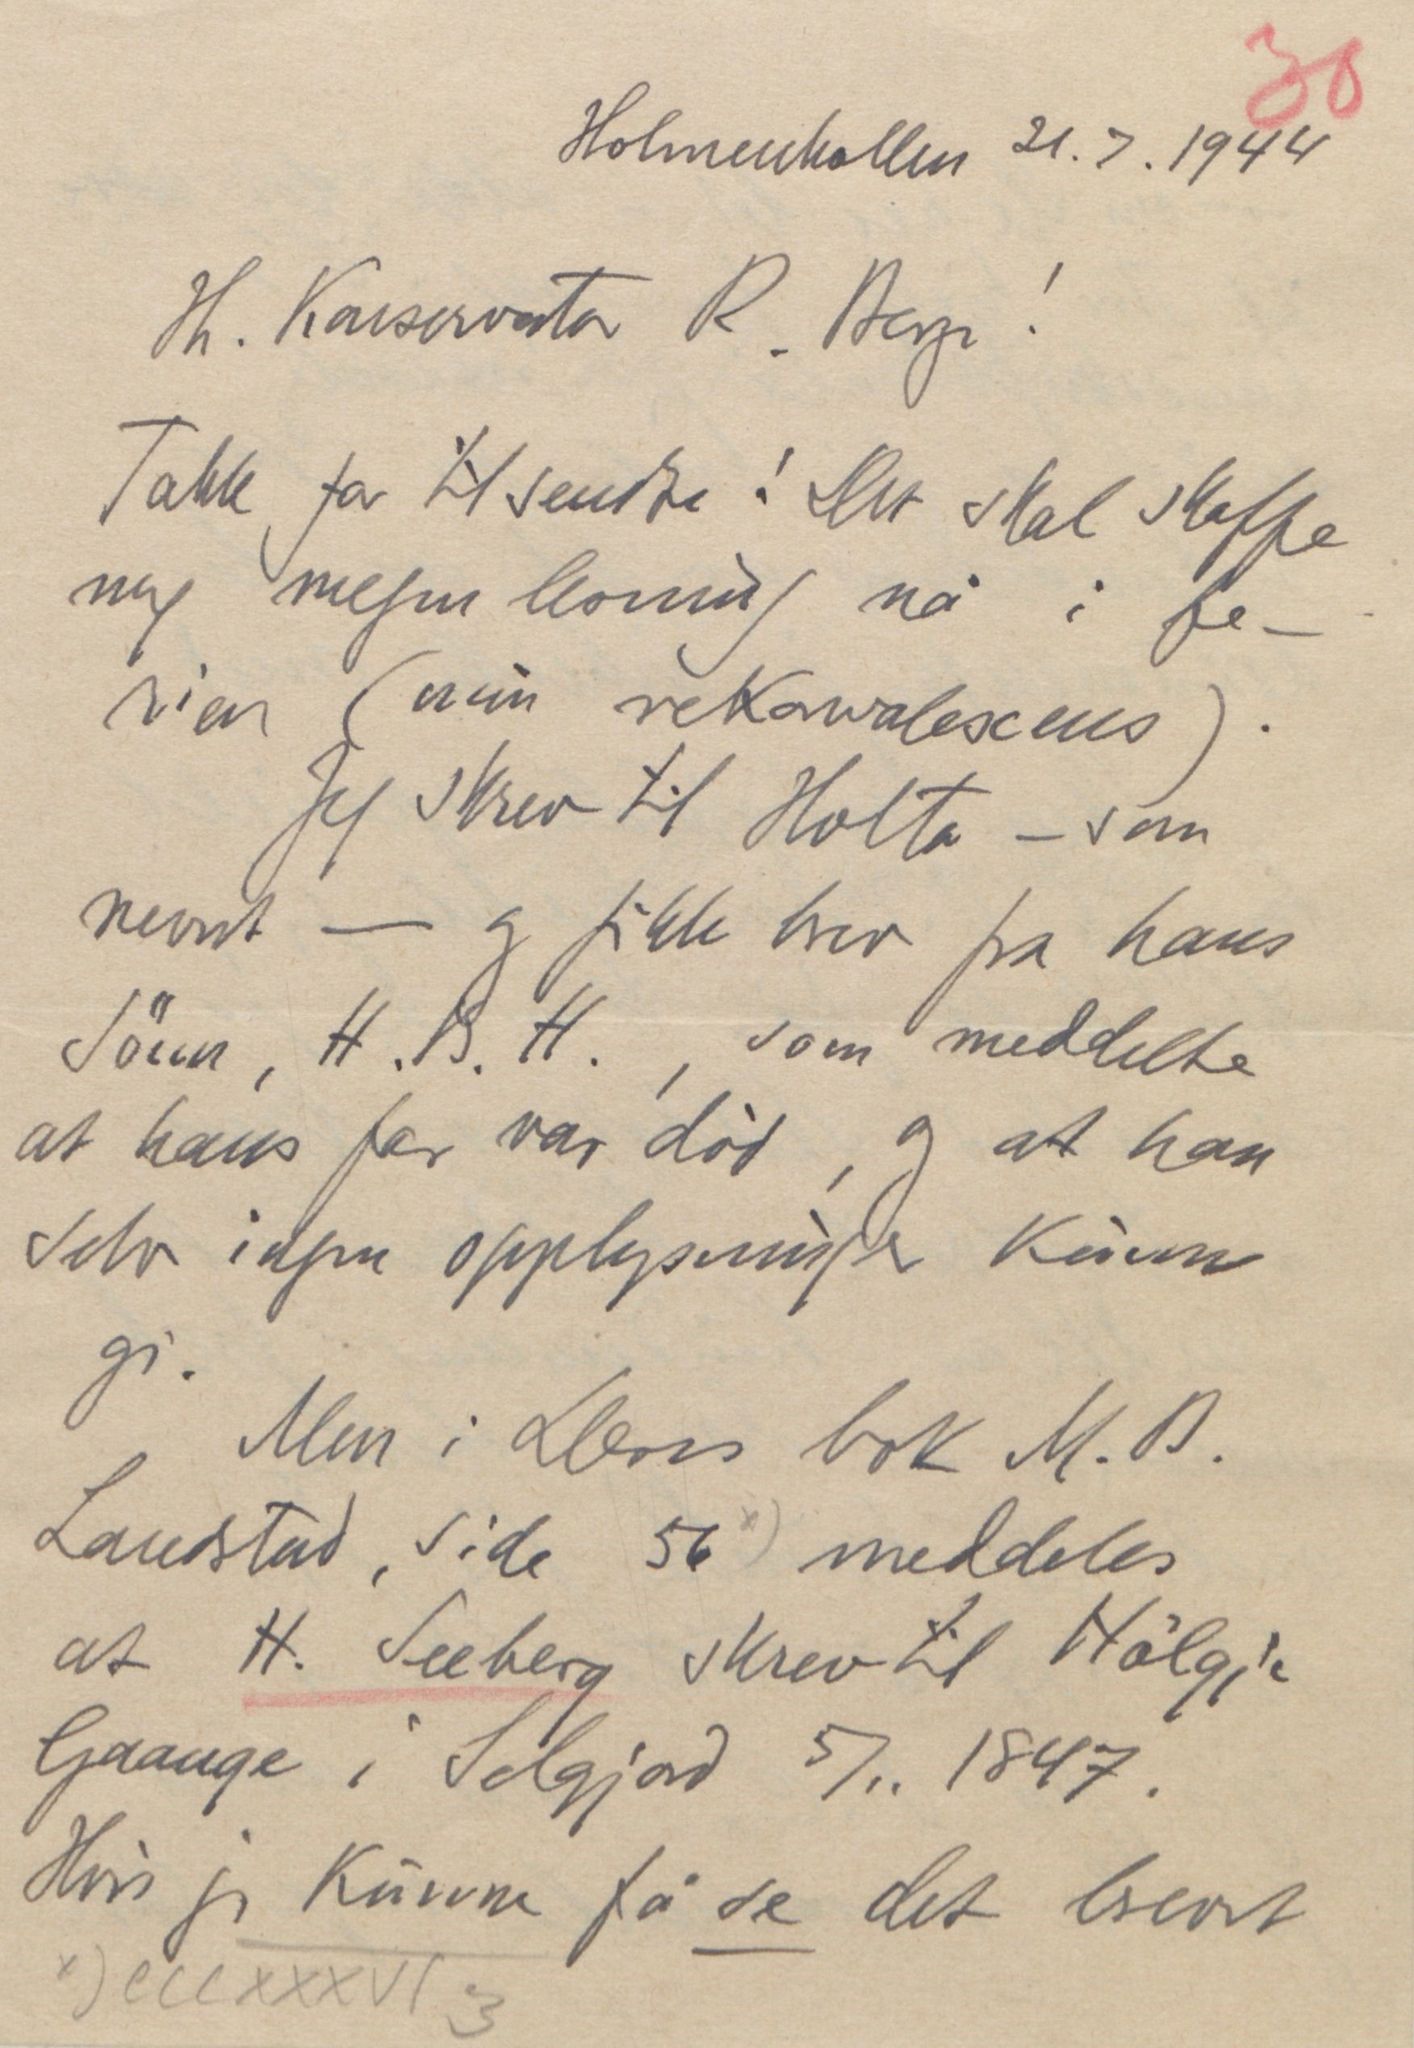 30
Holmenkollen 21.7.1944
Hr. Konservator R. Berge!
Takk for tilsendte! Det skal skaffe
mig megen lesning nå i fe-
rien (min rekonvalescens).
Jeg skrev til Holta - som
nevnt - og fikk brev fra hans
sönn, H.B.H., som meddelte
at hans far var död, og at han
selv ingen opplysninger kunne
gi.
Men i Deres bok M.B.
Landstad, side 56 x) meddeles
at H. Seeberg skrev til Hölgje
Gaange i Selgjord 5/.. 1847.
Hvis jeg kunne få se det brevet
x) CCCXXXVI 3